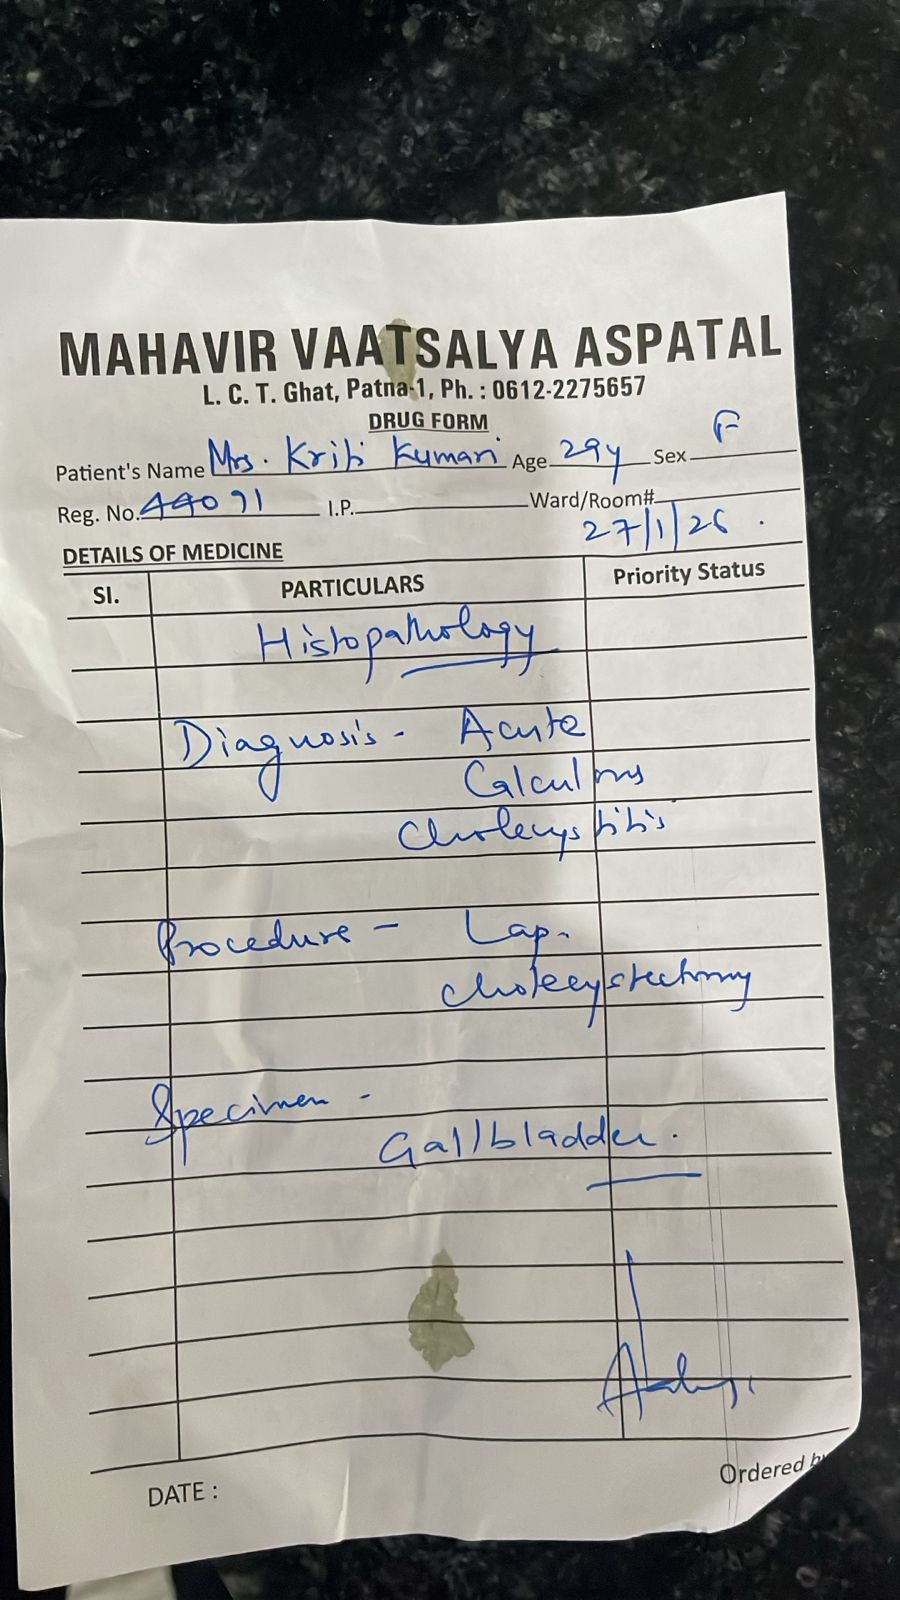 MAHAVIR VAATSALYA ASPATAL
L. C. T. Ghat, Patna-1, Ph. : 0612-2275657
DRUG FORM
Patient's Name Mrs. Kriti Kumari Age 29y Sex F
Reg. No. 44091 I.P. Ward/Room#
27/1/26.
DETAILS OF MEDICINE
Sl. PARTICULARS Priority Status
Histopathology
Diagnosis - Acute
Calculus
Cholecystitis
Procedure - Lap.
Cholecystectomy
Specimen -
Gallbladder.
Ordered
DATE :